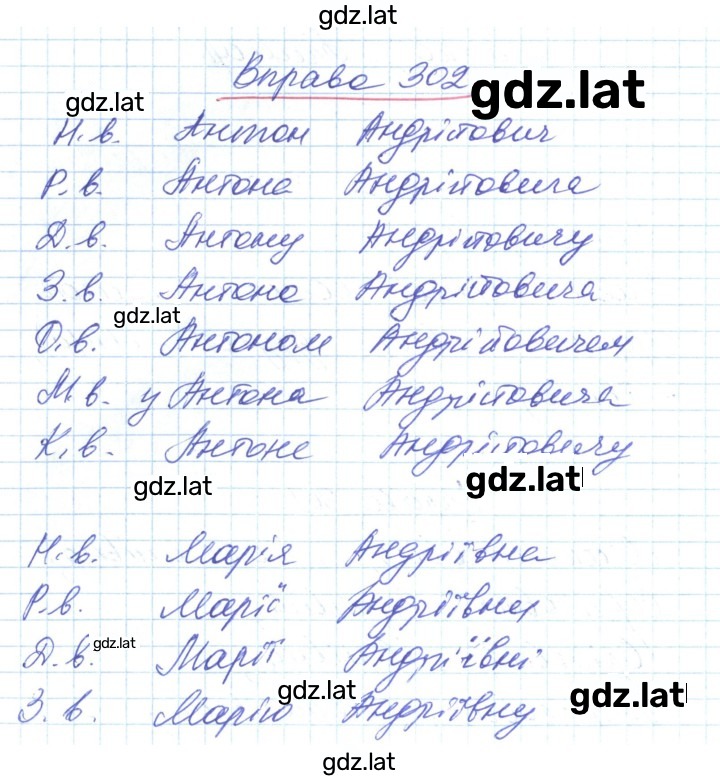 gdz.lat
Вправа 302
gdz.lat
gdz.lat
Н.в. Антон Андрійович
Р.в. Антона Андрійовича
Д.в. Антону Андрійовичу
З.в. Антона Андрійовича
gdz.lat
О.в. Антоном Андрійовичем
М.в. у Антона Андрійовича
К.в. Антоне Андрійовичу
gdz.lat
gdz.lat
Н.в. Марія Андріївна
Р.в. Марії Андріївни
Д.в. Марії Андріївні
gdz.lat
З.в. Марію Андріївну
gdz.lat
gdz.lat
gdz.lat